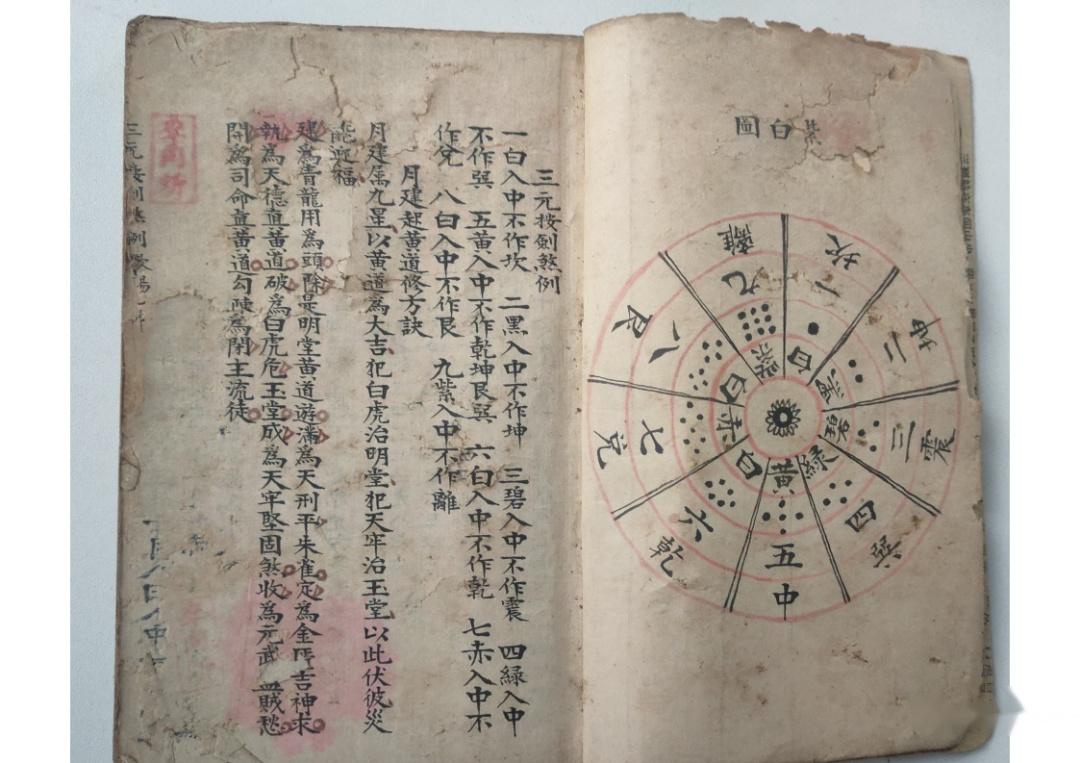 紫白圖
坎 一 白
坤 二 黑
震 三 碧
巽 四 綠
中 五 黃
乾 六 白
兌 七 赤
艮 八 白
離 九 紫
三元按劍煞例
一白入中不作坎 二黑入中不作坤 三碧入中不作震 四綠入中
不作巽 五黃入中不作乾坤艮巽 六白入中不作乾 七赤入中不
作兌 八白入中不作艮 九紫入中不作離
月建起黃道修方訣
月建屬九星以黃道為大吉犯白虎治明堂犯天牢治玉堂以此伏彼災
能迎福
建為青龍用為頭除是明堂黃道遊滿為天刑平朱雀定為金匱吉神求
執為天德直黃道破為白虎危玉堂成為天牢堅固煞收為元武盜賊愁
開為司命直黃道勾陳為閉主流徒
三元按劍煞例